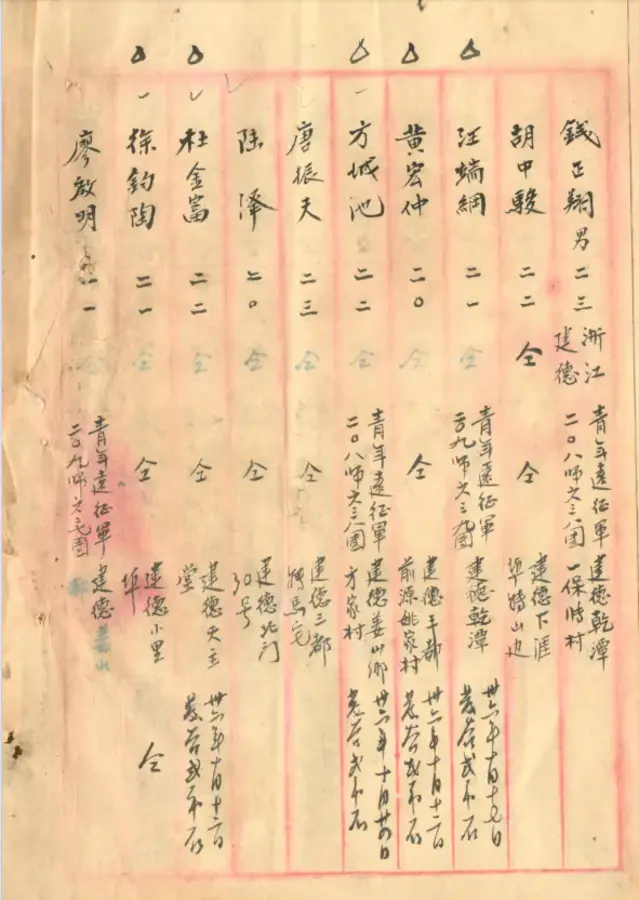 錢正翔 男 二三 浙江建德 青年遠征軍二〇八師六三八團 建德乾潭一保時村
胡中駿 二二 仝 仝 建德下涯埠
汪端綱 二一 仝 青年遠征軍二〇九師六三九團 建德乾潭 卅六年十月十七日
黃宏仲 二〇 仝 仝 建德三都前源姚家村 卅六年十月十二日
方城池 二二 仝 青年遠征軍二〇八師六三八團 建德姜山鄉方家村 卅六年十月廿四日
唐振夫 二三 仝 仝 建德三都
陸澤 二〇 仝 仝 建德北门30号
杜金富 二二 仝 仝 建德天主堂 卅六年十月十二日
徐鈞陶 二一 仝 仝 建德小里埠 仝
廖啟明 二一 仝 青年遠征軍二〇九師六 團 建德